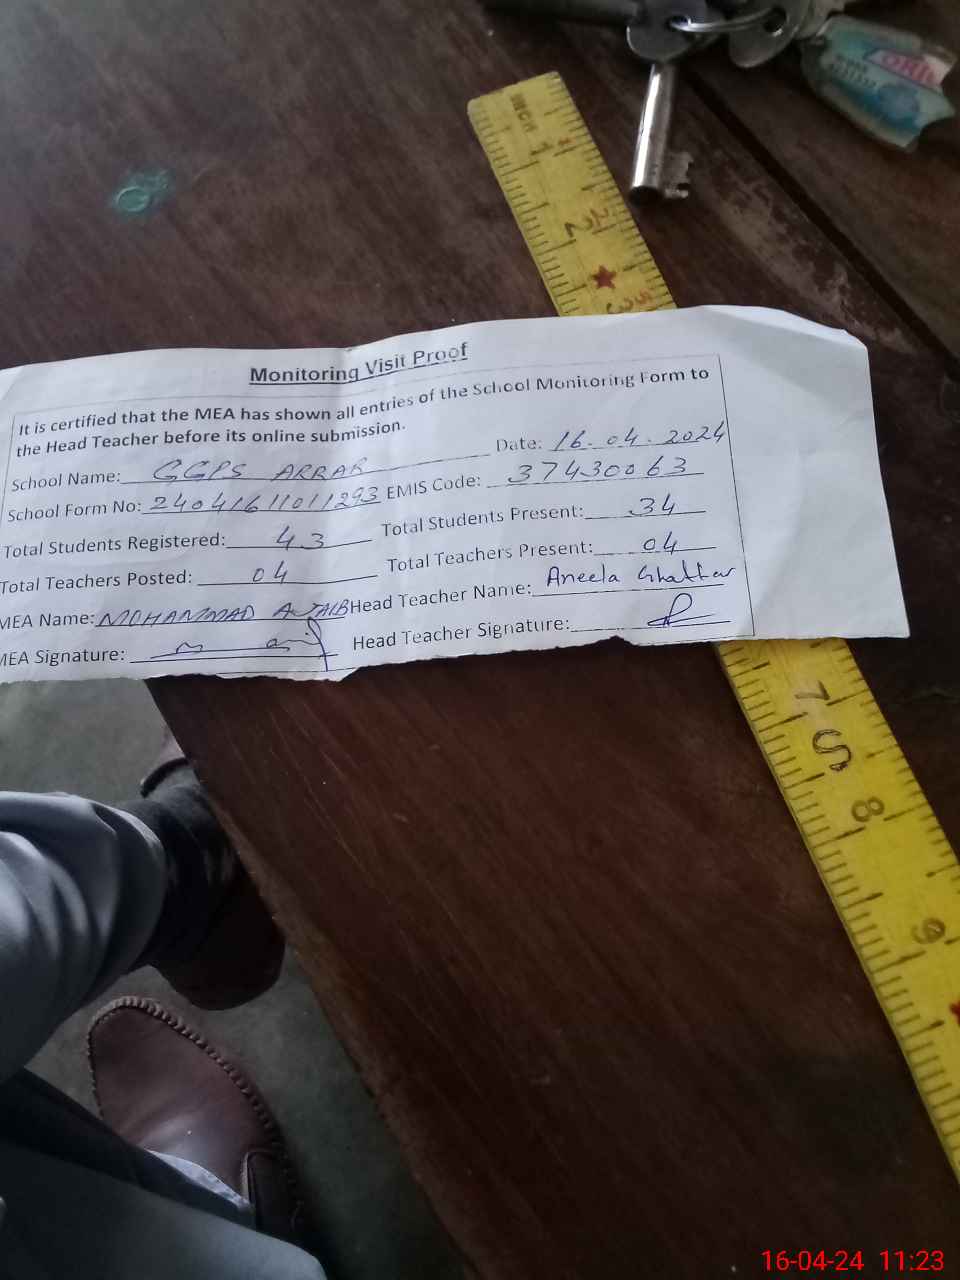 ORIC
INCH 1
2
3
Monitoring Visit Proof
It is certified that the MEA has shown all entries of the School Monitoring Form to
the Head Teacher before its online submission.
Date: 16-04-2024
School Name: GGPS ARRAR
School Form No: 24041611011293 EMIS Code: 37430063
Total Students Registered: 43 Total Students Present: 34
Total Teachers Posted: 04 Total Teachers Present: 04
MEA Name: MOHAMMAD AJAIB Head Teacher Name: Aneela Ghaffar
MEA Signature: Head Teacher Signature:
7
S
8
9
16-04-24 11:23